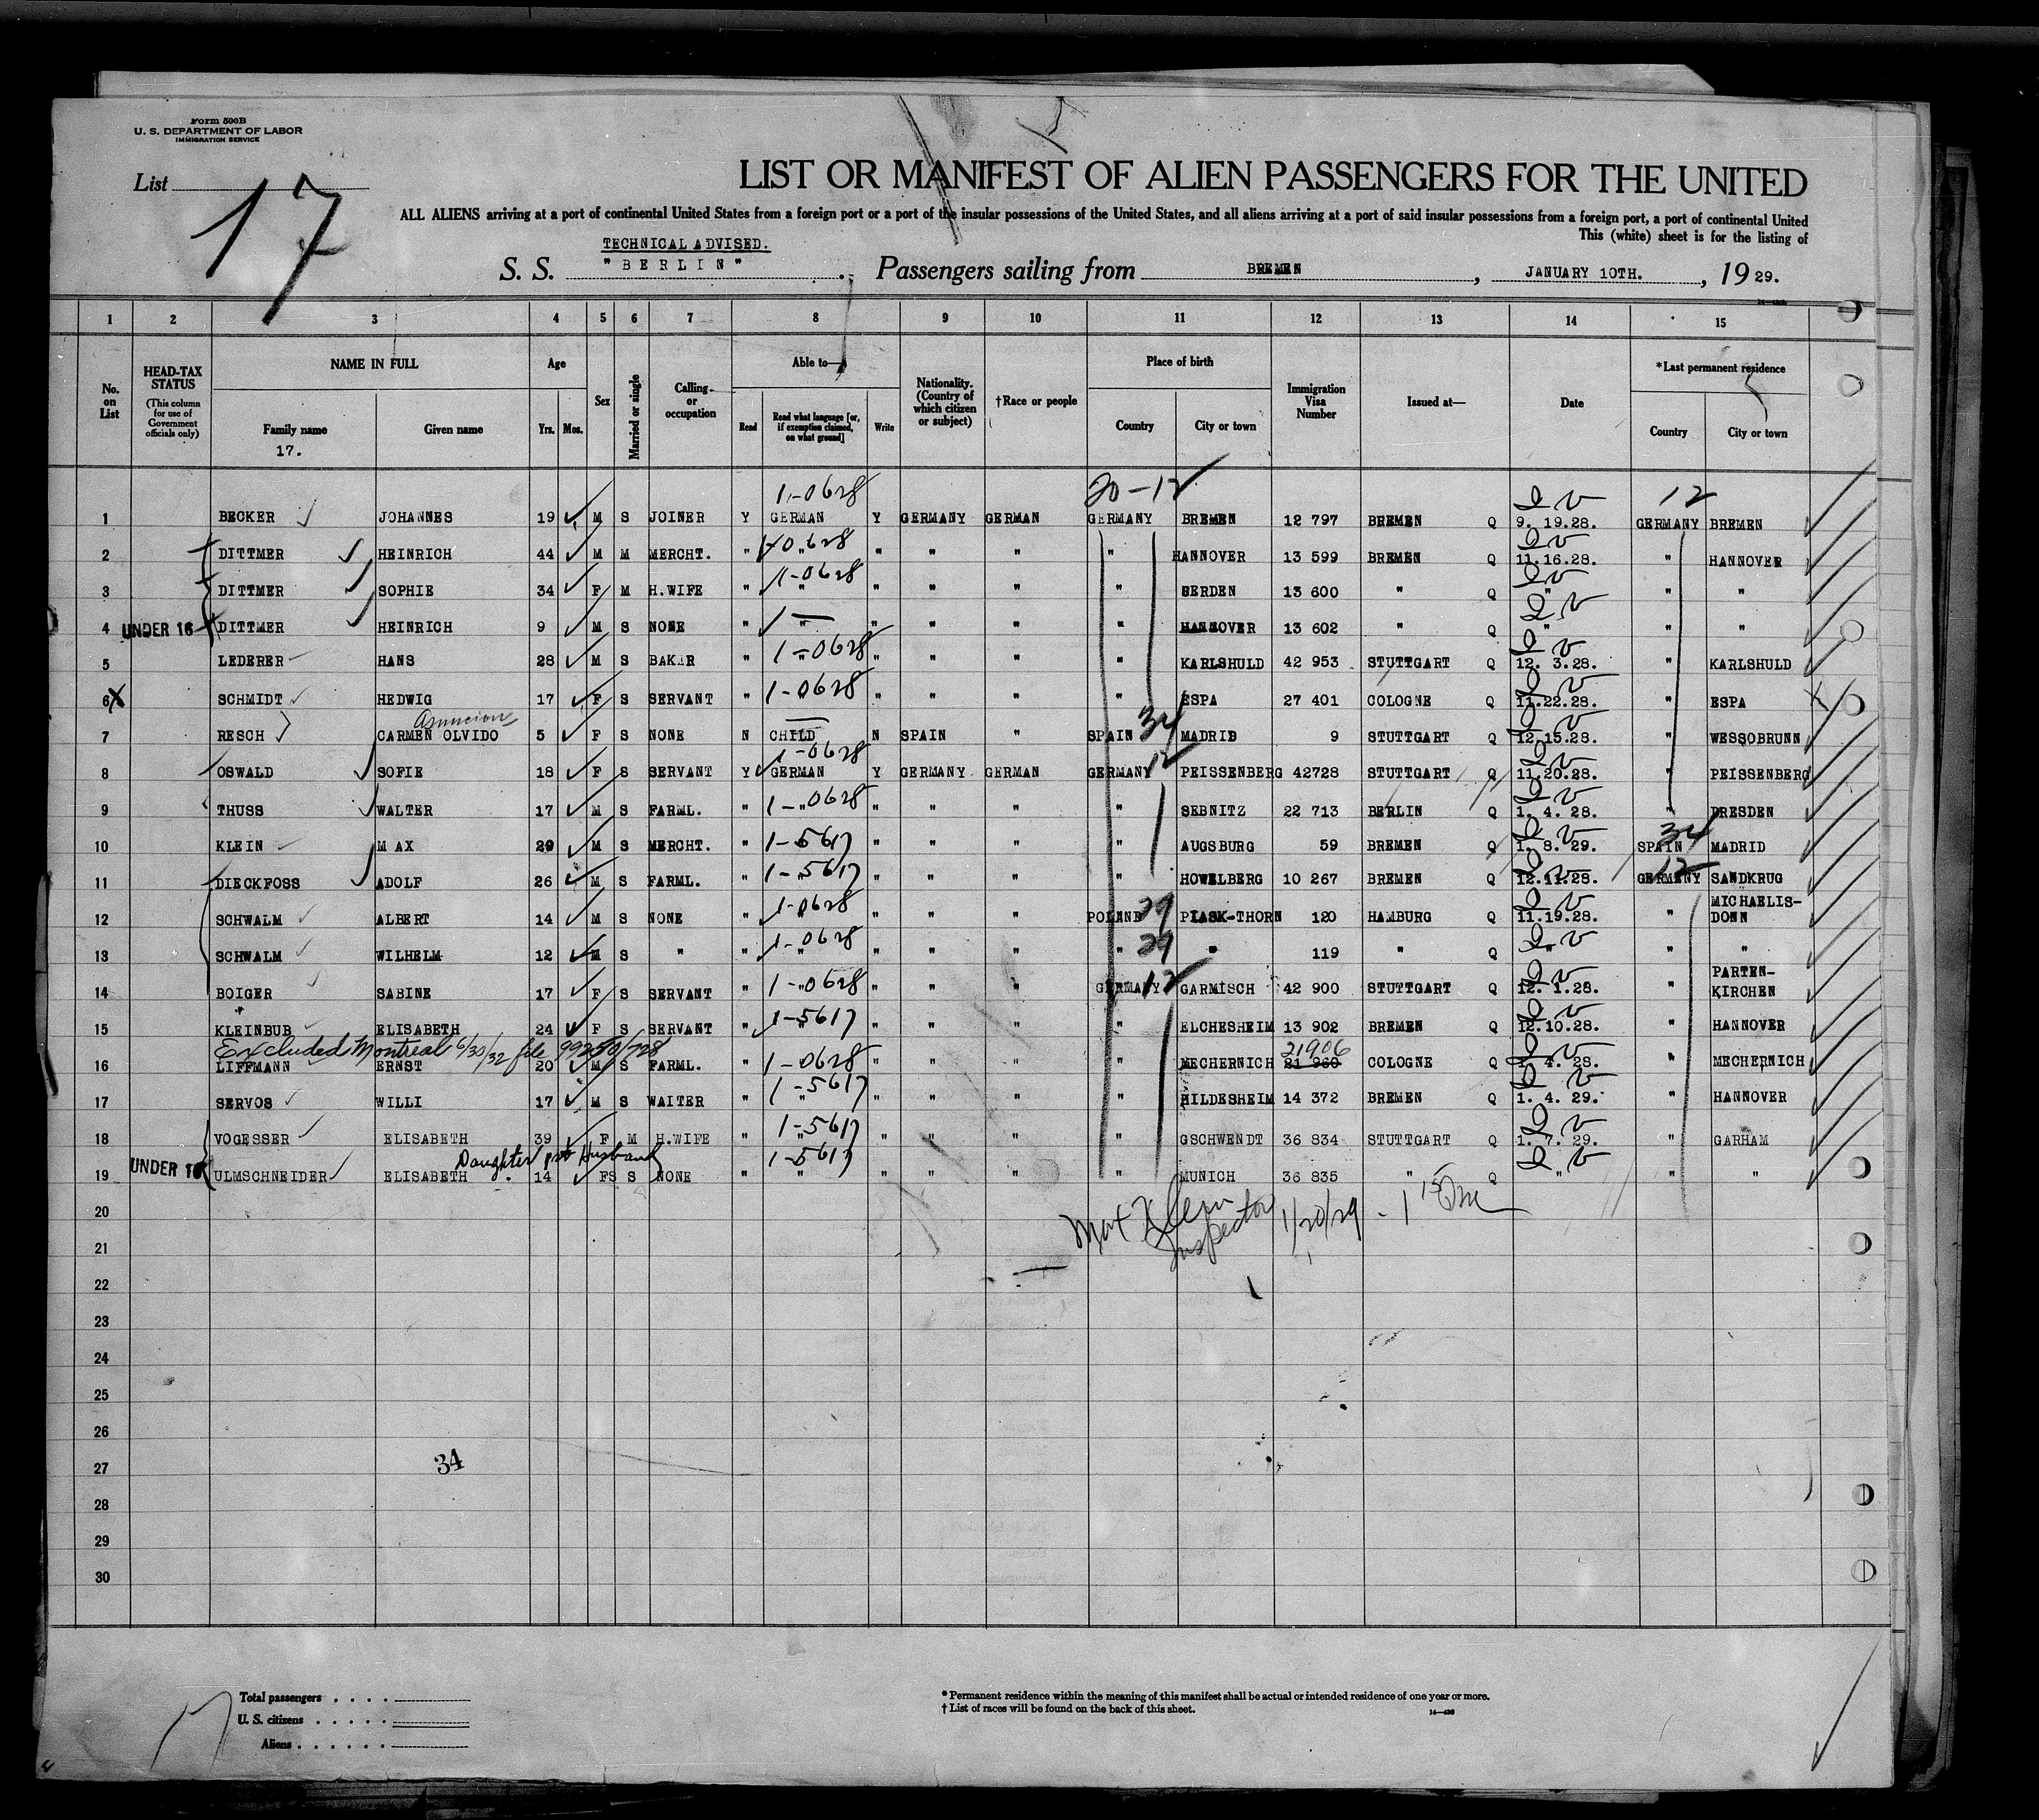 Form 500B
U. S. DEPARTMENT OF LABOR
IMMIGRATION SERVICE
List 17
LIST OR MANIFEST OF ALIEN PASSENGERS FOR THE UNITED
ALL ALIENS arriving at a port of continental United States from a foreign port or a port of the insular possessions of the United States, and all aliens arriving at a port of said insular possessions from a foreign port, a port of continental United
This (white) sheet is for the listing of
TECHNICAL ADVISED.
S. S. "BERLIN", Passengers sailing from BREMEN, JANUARY 10TH., 1929.
1 2 3 4 5 6 7 8 9 10 11 12 13 14 15
No. on List
HEAD-TAX STATUS (This column for use of Government officials only)
NAME IN FULL
Family name Given name
17.
Age
Yrs. Mos.
Sex
Married or single
Calling or occupation
Able to—
Read Read what language [or, if exemption claimed, on what ground] Write
Nationality. (Country of which citizen or subject)
†Race or people
Place of birth
Country City or town
Immigration Visa Number
Issued at—
Date
*Last permanent residence
Country City or town
1-0628 20-12 12
1 BECKER JOHANNES 19 M S JOINER Y GERMAN Y GERMANY GERMAN GERMANY BREMEN 12 797 BREMEN Q 9. 19.28. GERMANY BREMEN
1-0628
2 DITTMER HEINRICH 44 M M MERCHT. " " " " " " HANNOVER 13 599 BREMEN Q 11.16.28. " HANNOVER
1-0628
3 DITTMER SOPHIE 34 F M H.WIFE " " " " " " GERDEN 13 600 " Q " " "
4 UNDER 16 DITTMER HEINRICH 9 M S NONE " 1— " " " " HANNOVER 13 602 " Q " " "
1-0628
5 LEDERER HANS 28 M S BAKER " " " " " " KARLSHULD 42 953 STUTTGART Q 12. 3.28. " KARLSHULD
1-0628
6X SCHMIDT HEDWIG 17 F S SERVANT " " " " " " ESPA 27 401 COLOGNE Q 11.22.28. " ESPA
Asuncion 34
7 RESCH CARMEN OLVIDO 5 F S NONE N CHILD N SPAIN " SPAIN MADRID 9 STUTTGART Q 12.15.28. " WESSOBRUNN
1-0628 12
8 OSWALD SOFIE 18 F S SERVANT Y GERMAN Y GERMANY GERMAN GERMANY PEISSENBERG 42728 STUTTGART Q 11.20.28. " PEISSENBERG
1-0628
9 THUSS WALTER 17 M S FARML. " " " " " " SEBNITZ 22 713 BERLIN Q 1. 4. 28. " DRESDEN
1-5617 34
10 KLEIN MAX 29 M S MERCHT. " " " " " " AUGSBURG 59 BREMEN Q 1. 8. 29. SPAIN MADRID
1-5617 12
11 DIECKFOSS ADOLF 26 M S FARML. " " " " " " HOWELBERG 10 267 BREMEN Q 12.11.28. GERMANY SANDKRUG
1-0628 29
12 SCHWALM ALBERT 14 M S NONE " " " " " POLAND PIASK-THORN 120 HAMBURG Q 11.19.28. " MICHAELIS-DONN
1-0628 29
13 SCHWALM WILHELM 12 M S " " " " " " " " 119 " Q " " "
1-0628 12
14 BOIGER SABINE 17 F S SERVANT " " " " " GERMANY GARMISCH 42 900 STUTTGART Q 12. 1.28. " PARTEN-KIRCHEN
1-5617
15 KLEINBUB ELISABETH 24 F S SERVANT " " " " " " ELCHESHEIM 13 902 BREMEN Q 12.10.28. " HANNOVER
Excluded Montreal 6/30/32 file 99250/728
1-0628 21906
16 LIFFMANN ERNST 20 M S FARML. " " " " " " MECHERNICH 21 960 COLOGNE Q 1. 4. 28. " MECHERNICH
1-5617
17 SERVOS WILLI 17 M S WAITER " " " " " " HILDESHEIM 14 372 BREMEN Q 1. 4. 29. " HANNOVER
1-5617
18 VOGESSER ELISABETH 39 F M H.WIFE " " " " " " GSCHWENDT 36 834 STUTTGART Q 1. 7. 29. " GARHAM
Daughter 1st Husband 1-5617
19 UNDER 16 ULMSCHNEIDER ELISABETH 14 FS S NONE " " " " " " MUNICH 36 835 " Q " " "
20
Max Klein
Inspector 1/20/29
21
22
23
24
25
26
27
34
28
29
30
Total passengers
U. S. citizens
Aliens
17
* Permanent residence within the meaning of this manifest shall be actual or intended residence of one year or more.
† List of races will be found on the back of this sheet.